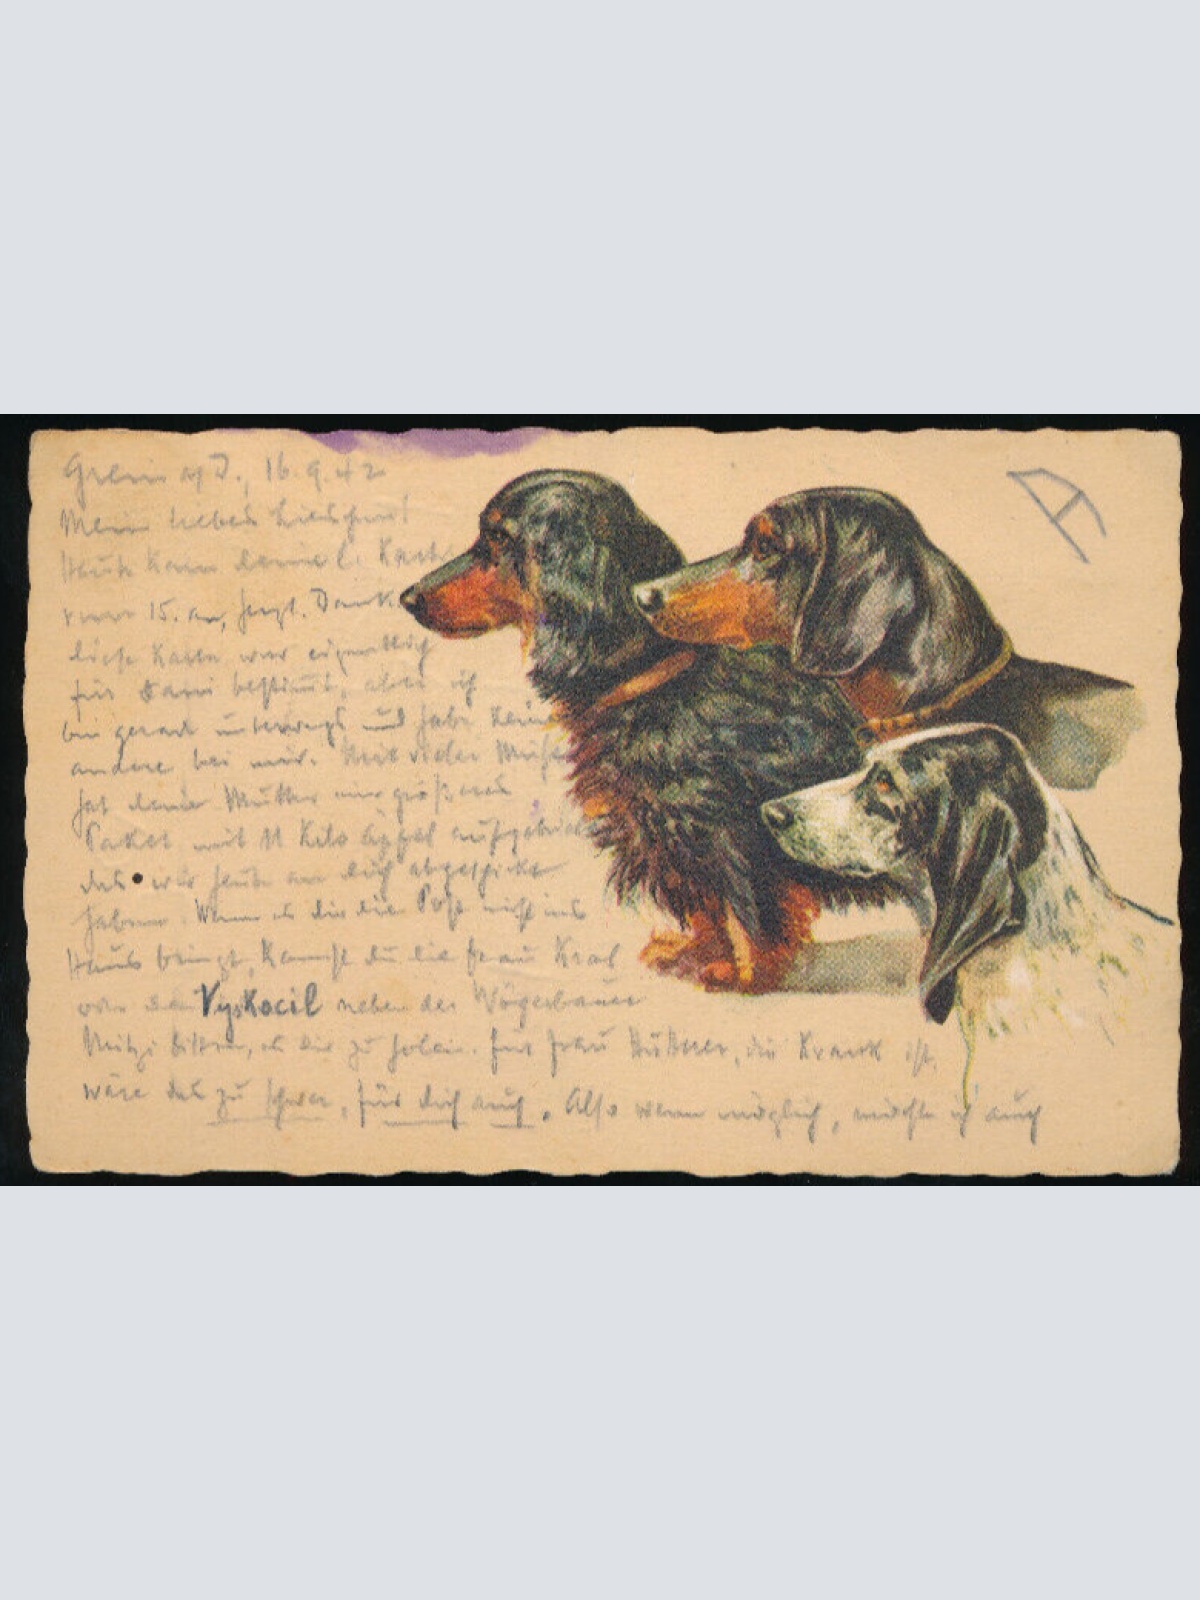 Grein a/D., 16.9.42
Mein liebes
Heute kam deine l. Karte
vom 15. an, herzl. Dank.
diese Karte war eigentlich
für bestimmt, aber ich
bin gerade unterwegs und habe keine
andere bei mir. Mit vieler Mühe
hat deine Mutter ein größeres
Paket mit 11 Kilo Äpfel
das wir heute an dich abgeschickt
haben. Wenn es dir die Post nicht ins
Haus bringt, kannst du die Frau Kral
oder den Vyskocil neben der
Mitzi bitten, es dir zu holen. Für Frau die krank ist,
wäre das zu schwer, für dich auch. Also wenn möglich, möchte ich auch
A